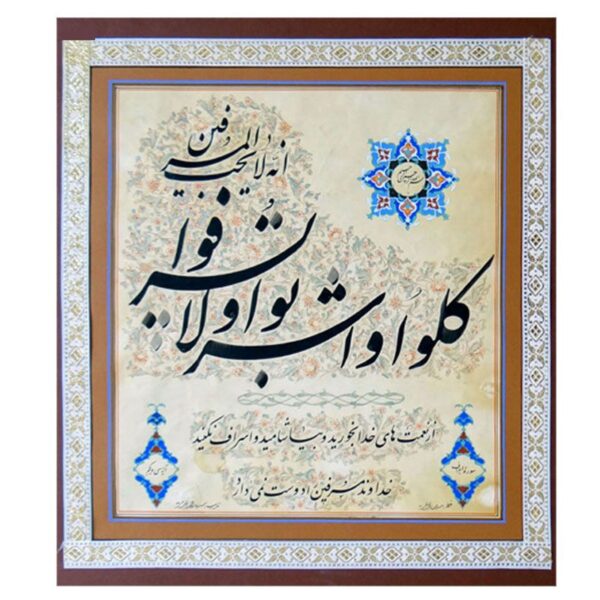 کلوا و اشربوا و لا تسرفوا
انه لا یحب المسرفین
از نعمت های خدا بخورید و بیاشامید و اسراف نکنید
خداوند مسرفین را دوست نمی دارد
سوره اعراف